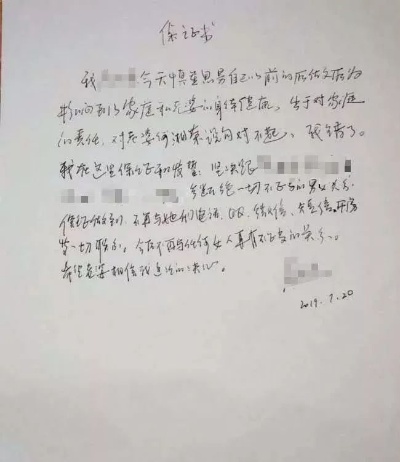 保证书
我 今天慎重思考自己以前的所做所为
影响到了家庭和老婆的身体健康，出于对家庭
的责任，对老婆何湘 说句对不起，我错了。
我在这里保证和发誓：坚决跟
断绝一切不正当的男女关系
保证做到 不再与她们电话、QQ、微信、发短信、开房
等一切联系，今后不再与任何女人再有不正当的关系。
希望老婆相信我这次的决心。
2019.7.20